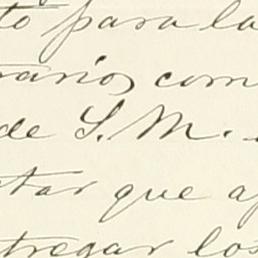 to para la
rarios com
de S. M.
tar que a
tregar los